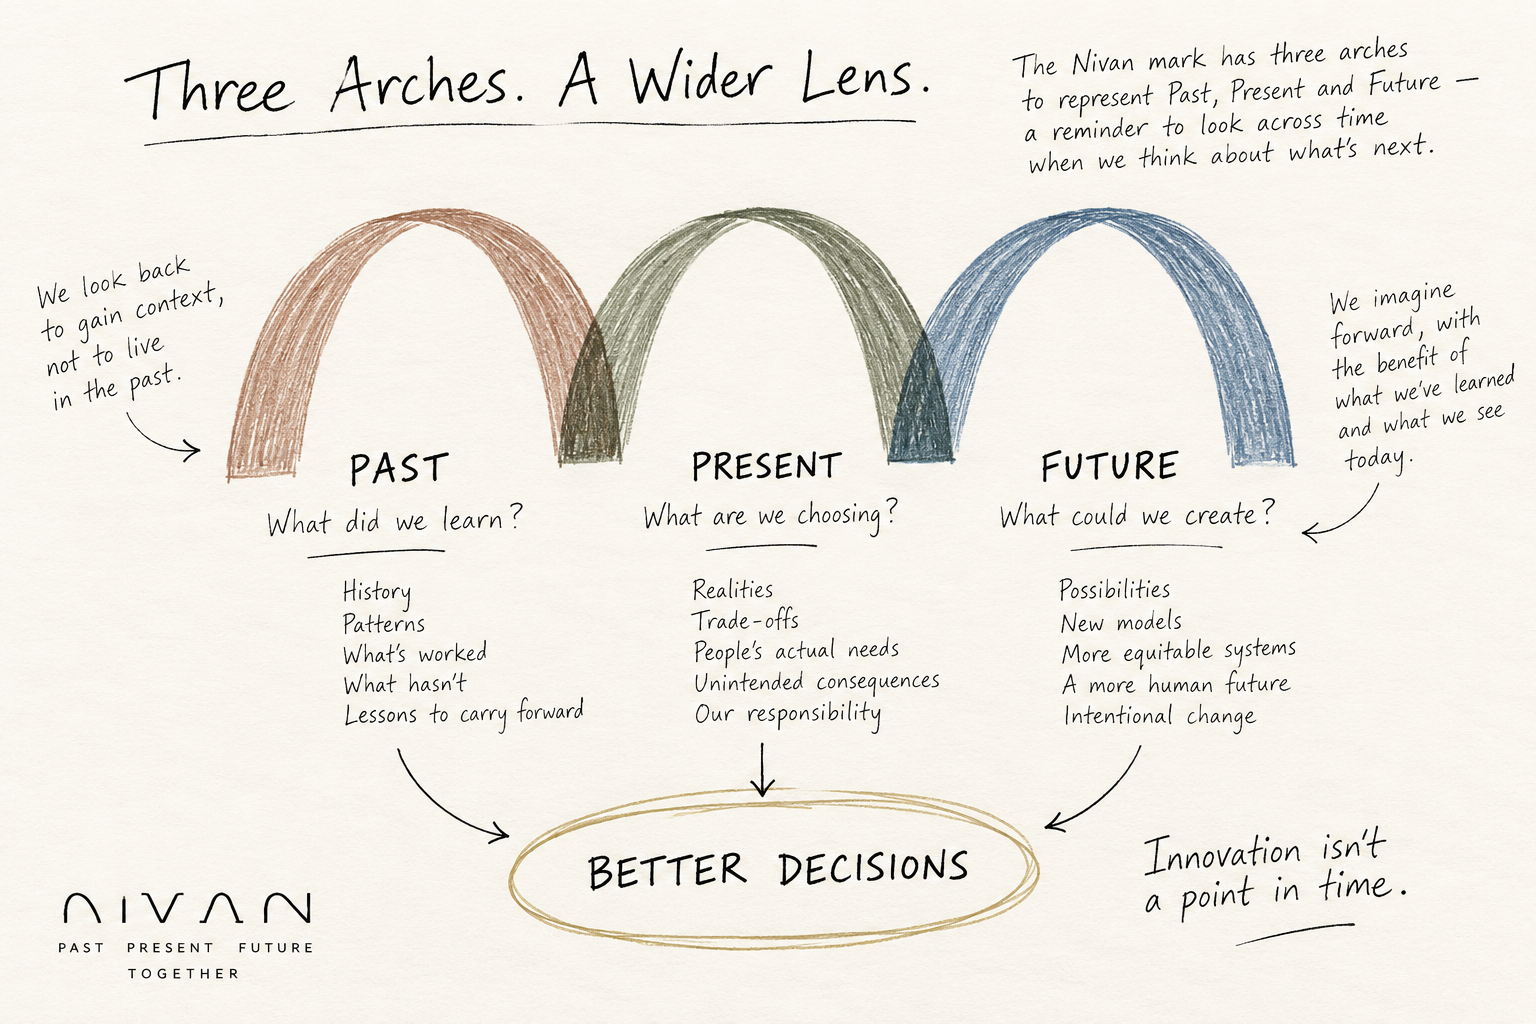 Three Arches. A Wider Lens.
The Nivan mark has three arches
to represent Past, Present and Future —
a reminder to look across time
when we think about what's next.
We look back
to gain context,
not to live
in the past.
We imagine
forward, with
the benefit of
what we've learned
and what we see
today.
PAST
What did we learn?
History
Patterns
What's worked
What hasn't
Lessons to carry forward
PRESENT
What are we choosing?
Realities
Trade-offs
People's actual needs
Unintended consequences
Our responsibility
FUTURE
What could we create?
Possibilities
New models
More equitable systems
A more human future
Intentional change
BETTER DECISIONS
Innovation isn't
a point in time.
NIVAN
PAST PRESENT FUTURE
TOGETHER